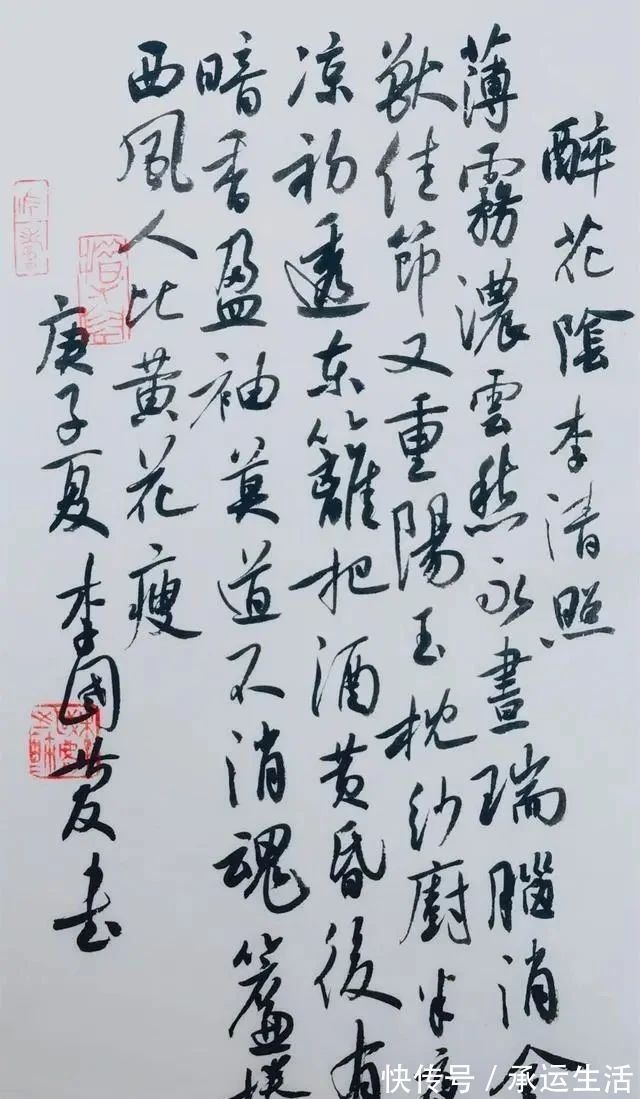 醉花陰李清照
薄霧濃雲愁永晝瑞腦消金
獸佳節又重陽玉枕紗廚半夜
凉初透東籬把酒黄昏後有
暗香盈袖莫道不消魂簾捲
西風人比黄花瘦
庚子夏李國书
快传号／承运生活